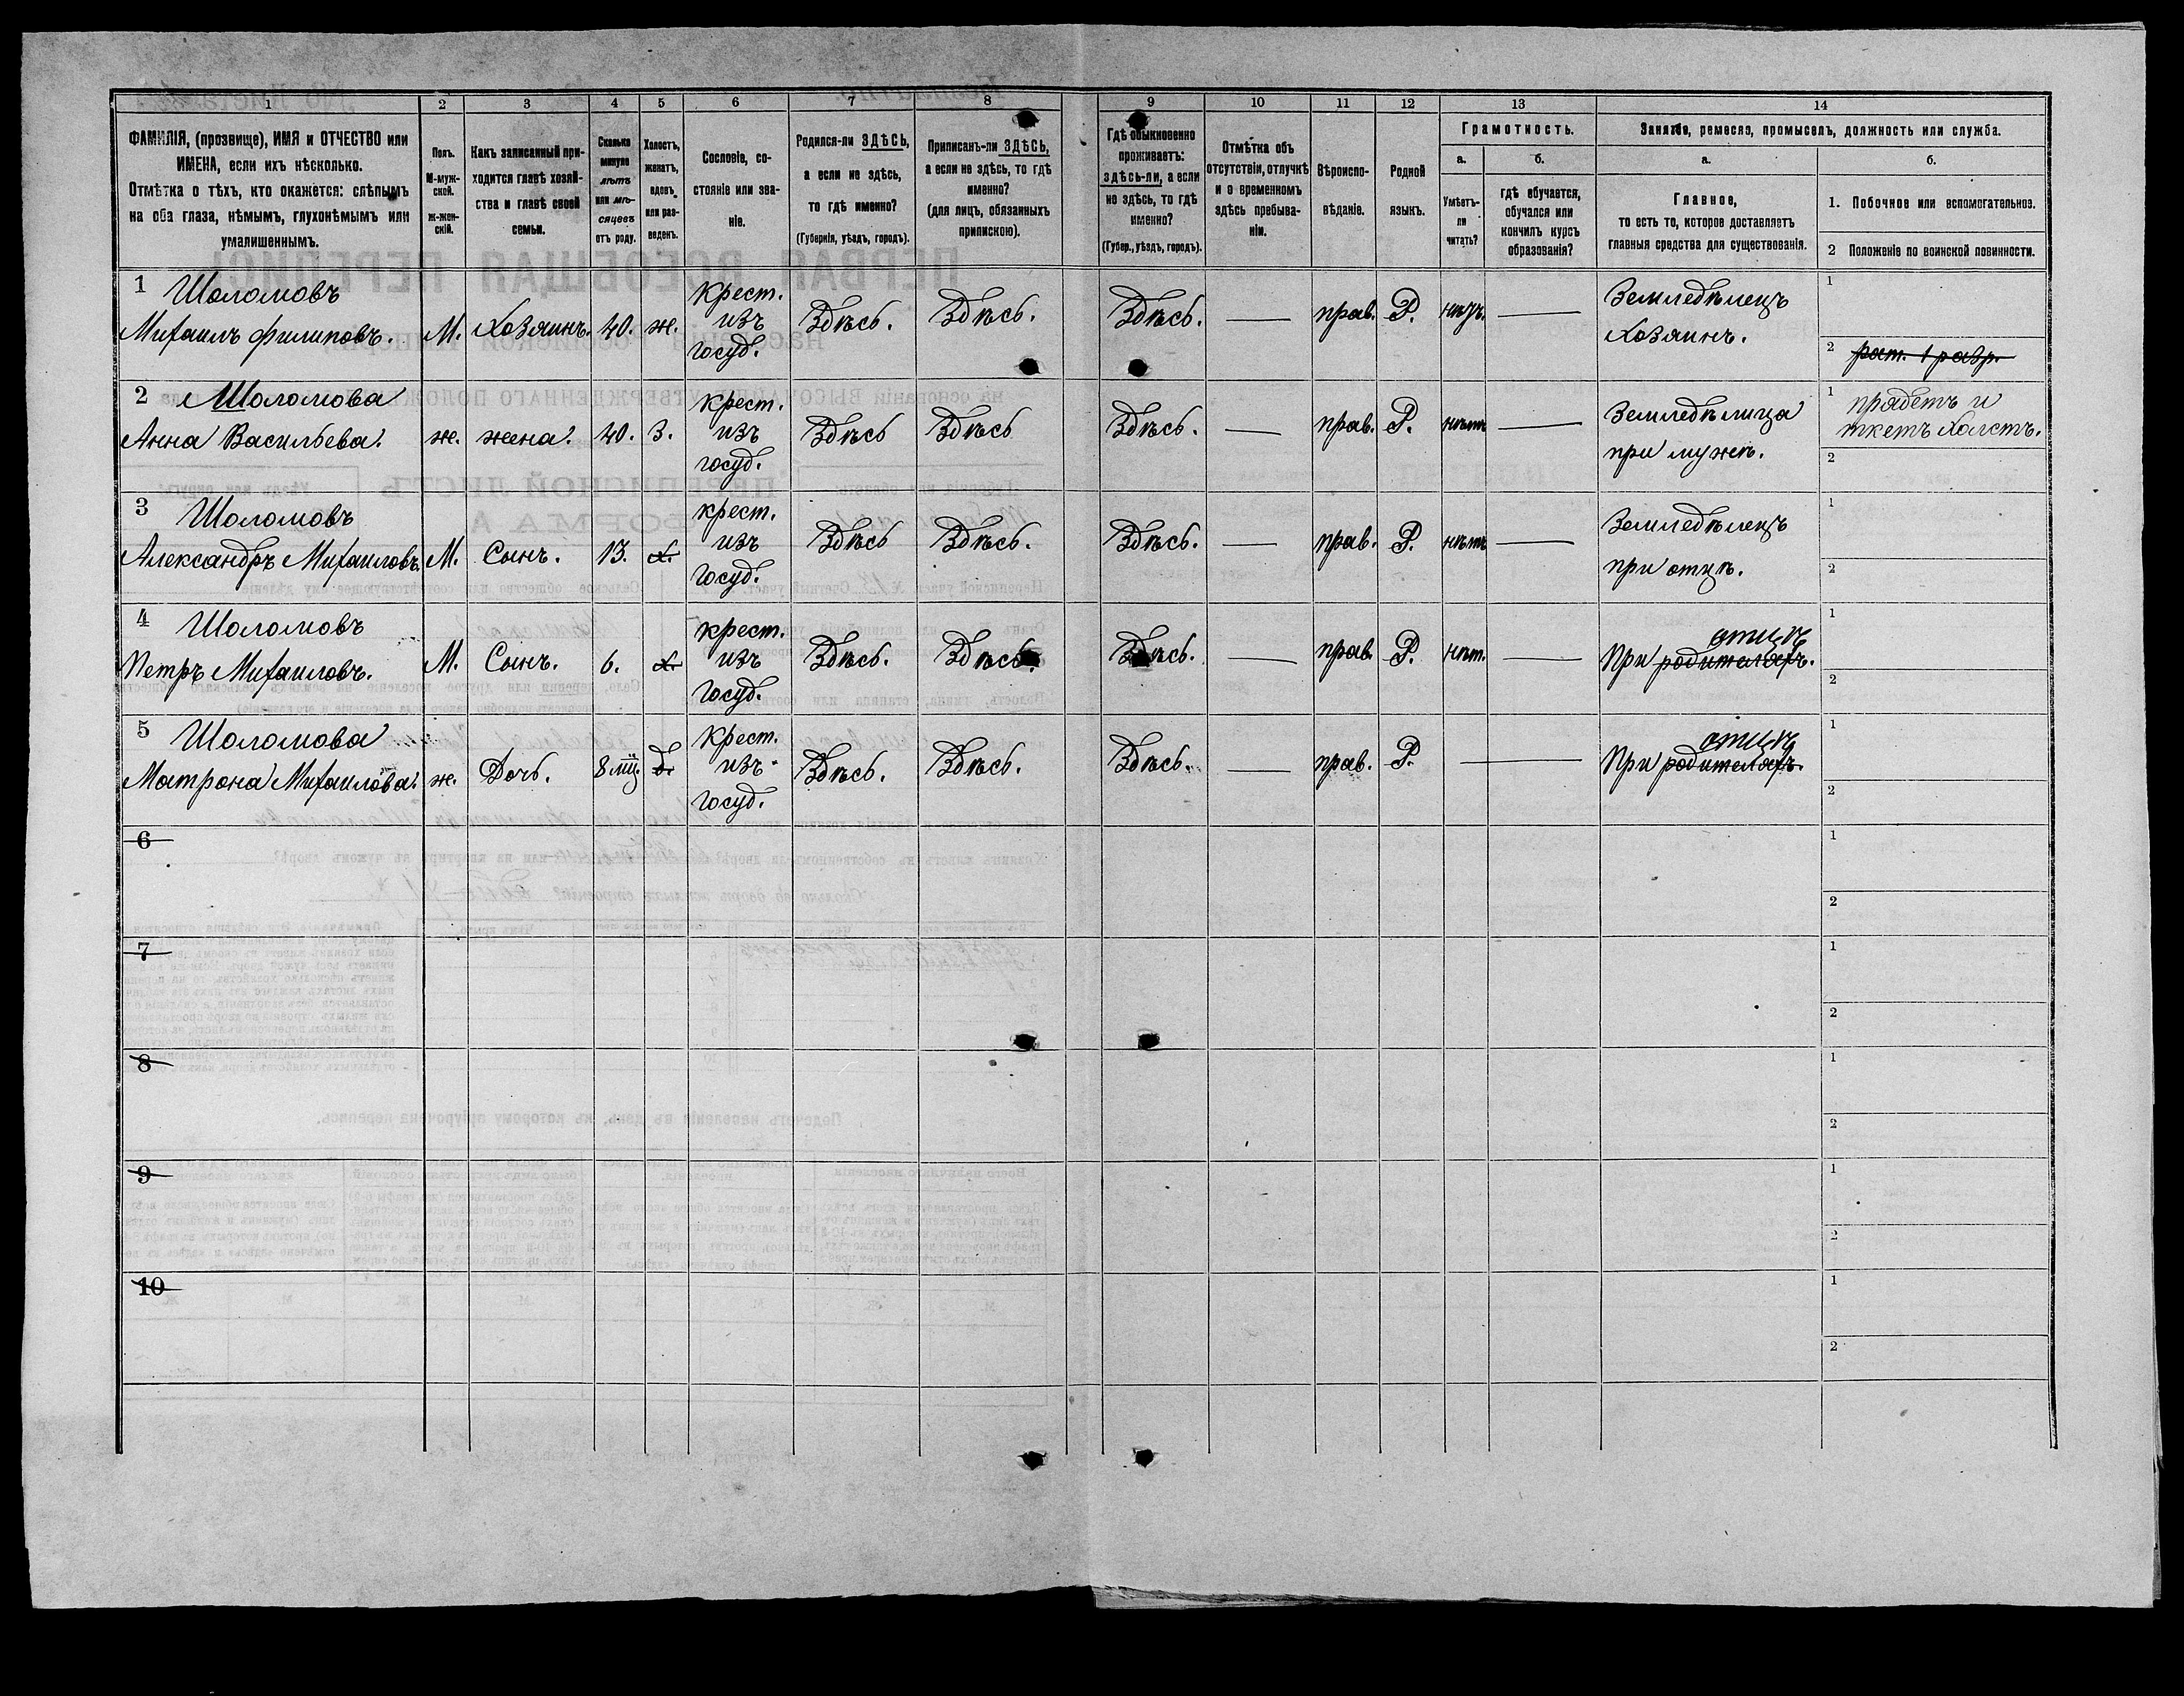 1 2 3 4 5 6 7 8 9 10 11 12 13 14
ФАМИЛІЯ, (прозвище), ИМЯ и ОТЧЕСТВО или
ИМЕНА, если ихъ нѣсколько.
Отмѣтка о тѣхъ, кто окажется: слѣпымъ
на оба глаза, нѣмымъ, глухонѣмымъ или
умалишеннымъ.
Полъ.
М-муж-
ской.
ж-жен-
скій.
Какъ записанный при-
ходится главѣ хозяй-
ства и главѣ своей
семьи.
Сколько
минуло
лѣтъ
или мѣ-
сяцевъ
отъ роду.
Холостъ,
женатъ,
вдовъ
или раз-
веденъ.
Сословіе, со-
стояніе или зва-
ніе.
Родился-ли ЗДѢСЬ,
а если не здѣсь,
то гдѣ именно?
(Губернія, уѣздъ, городъ).
Приписанъ-ли ЗДѢСЬ,
а если не здѣсь, то гдѣ
именно?
(для лицъ, обязанныхъ
припискою).
Гдѣ обыкновенно
проживаетъ:
здѣсь-ли, а если
не здѣсь, то гдѣ
именно?
(Губер., уѣздъ, городъ).
Отмѣтка объ
отсутствіи, отлучкѣ
и о временномъ
здѣсь пребыва-
ніи.
Вѣроиспо-
вѣданіе.
Родной
языкъ.
Грамотность.
а.
Умѣетъ-
ли
читать?
б.
гдѣ обучается,
обучался или
кончилъ курсъ
образованія?
Занятіе, ремесло, промыселъ, должность или служба.
а.
Главное,
то есть то, которое доставляетъ
главныя средства для существованія.
б.
1. Побочное или вспомогательное.
2 Положеніе по воинской повинности.
1 Шоломовъ
Михаилъ Филиповъ. М. Хозяинъ. 40. ж.
крест.
изъ
госуд.
Здѣсь. Здѣсь. Здѣсь. — прав. Р. —
Земледѣлецъ
Хозяинъ.
1
2 рат. 1 разр.
2 Шоломова
Анна Васильева. ж. жена. 40. З.
крест.
изъ
госуд.
Здѣсь Здѣсь Здѣсь. — прав. Р. нѣтъ —
Земледѣлица
при мужѣ.
1 прядетъ и
ткетъ холстъ.
2
3 Шоломовъ
Александръ Михаиловъ. М. Сынъ. 13. х.
крест.
изъ
госуд.
Здѣсь Здѣсь. Здѣсь. — прав. Р. нѣтъ —
Земледѣлецъ
при отцѣ.
1
2
4 Шоломовъ
Петръ Михаиловъ. М. Сынъ. 6. х.
крест.
изъ
госуд.
Здѣсь. Здѣсь. Здѣсь. — прав. Р. нѣт. —
отцѣ
При родителяхъ.
1
2
5 Шоломова
Матрона Михаилова. ж. Дочь. 8 м. д.
крест.
изъ
госуд.
Здѣсь. Здѣсь. Здѣсь. — прав. Р. —
отцѣ
При родителяхъ.
1
2
6
1
2
7
1
2
8
1
2
9
1
2
10
1
2